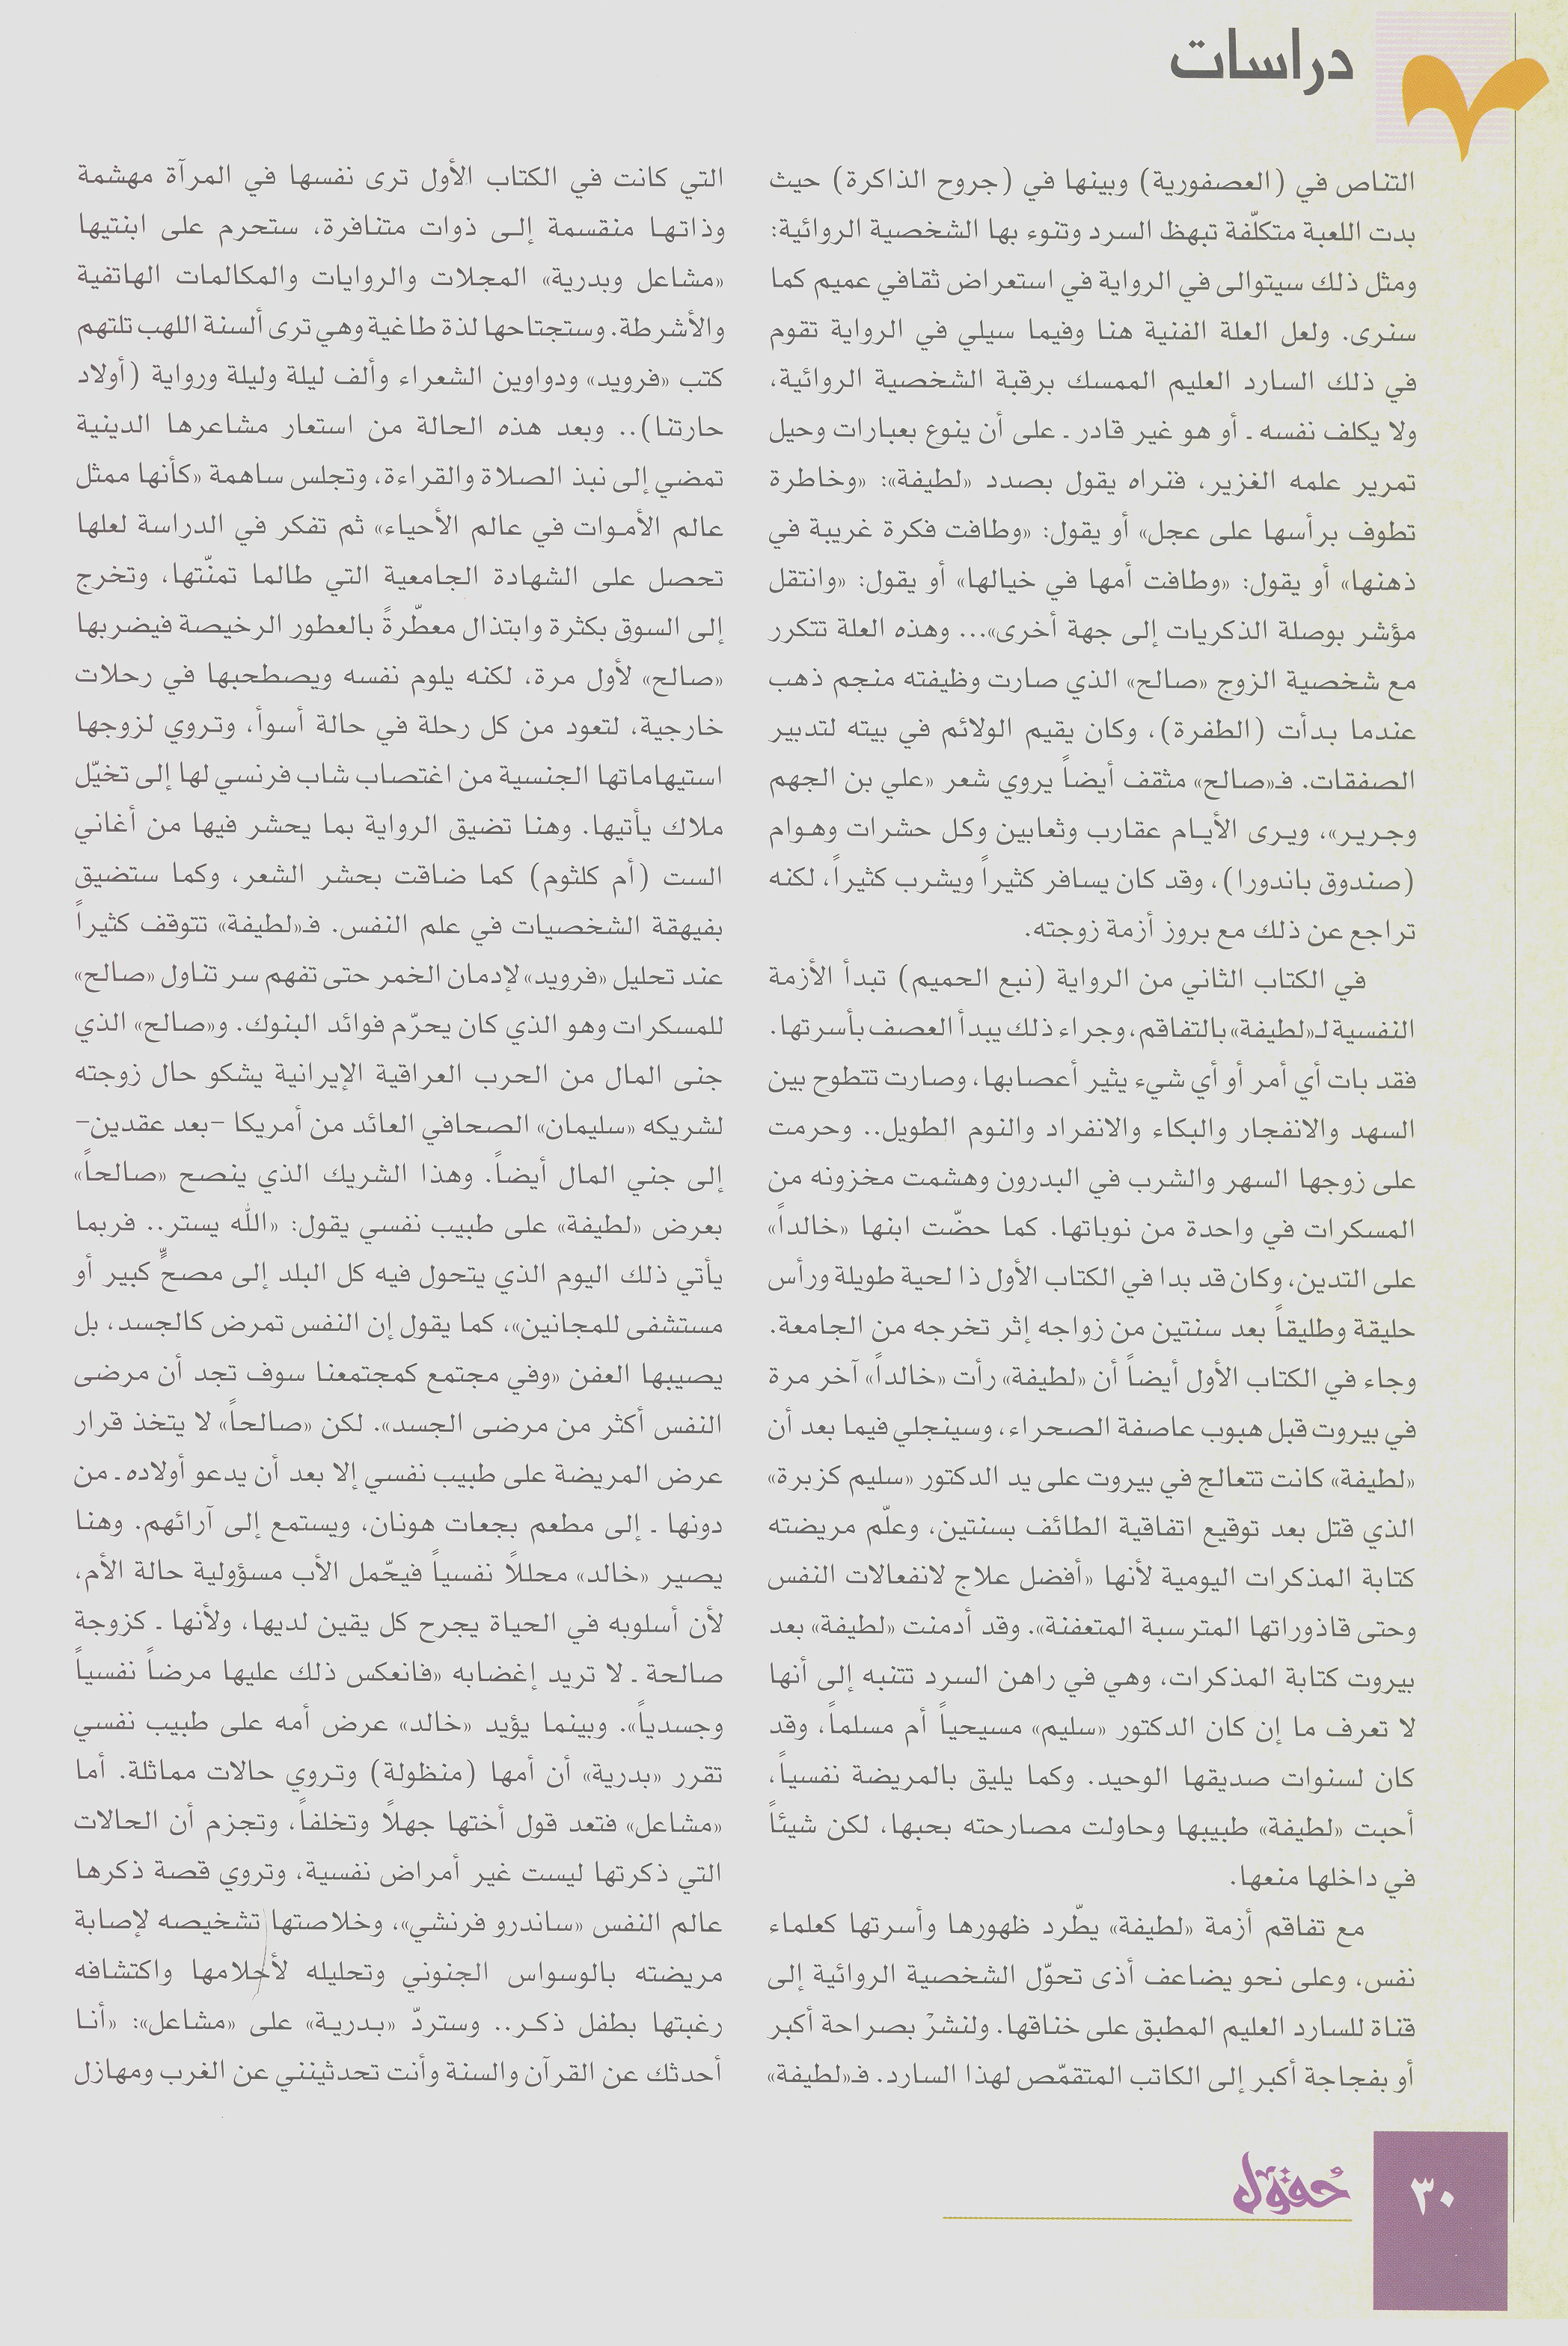 دراسات
التناص في (العصفورية) وبينها في (جروح الذاكرة) حيث
بدت اللعبة متكلّفة تبهظ السرد وتنوء بها الشخصية الروائية:
ومثل ذلك سيتوالى في الرواية في استعراض ثقافي عميم كما
سنرى. ولعل العلة الفنية هنا وفيما سيلي في الرواية تقوم
في ذلك السارد العليم الممسك برقبة الشخصية الروائية،
ولا يكلف نفسه ـ أو هو غير قادر ـ على أن ينوع بعبارات وحيل
تمرير علمه الغزير، فتراه يقول بصدد «لطيفة»: «وخاطرة
تطوف برأسها على عجل» أو يقول: «وطافت فكرة غريبة في
ذهنها» أو يقول: «وطافت أمها في خيالها» أو يقول: «وانتقل
مؤشر بوصلة الذكريات إلى جهة أخرى»... وهذه العلة تتكرر
مع شخصية الزوج «صالح» الذي صارت وظيفته منجم ذهب
عندما بدأت (الطفرة)، وكان يقيم الولائم في بيته لتدبير
الصفقات. فـ«صالح» مثقف أيضاً يروي شعر «علي بن الجهم
وجرير»، ويرى الأيام عقارب وثعابين وكل حشرات وهوام
(صندوق باندورا)، وقد كان يسافر كثيراً ويشرب كثيراً، لكنه
تراجع عن ذلك مع بروز أزمة زوجته.
في الكتاب الثاني من الرواية (نبع الحميم) تبدأ الأزمة
النفسية لـ«لطيفة» بالتفاقم، وجراء ذلك يبدأ العصف بأسرتها.
فقد بات أي أمر أو أي شيء يثير أعصابها، وصارت تتطوح بين
السهد والانفجار والبكاء والانفراد والنوم الطويل.. وحرمت
على زوجها السهر والشرب في البدرون وهشمت مخزونه من
المسكرات في واحدة من نوباتها. كما حضّت ابنها «خالداً»
على التدين، وكان قد بدا في الكتاب الأول ذا لحية طويلة ورأس
حليقة وطليقاً بعد سنتين من زواجه إثر تخرجه من الجامعة.
وجاء في الكتاب الأول أيضاً أن «لطيفة» رأت «خالداً» آخر مرة
في بيروت قبل هبوب عاصفة الصحراء، وسينجلي فيما بعد أن
«لطيفة» كانت تتعالج في بيروت على يد الدكتور «سليم كزبرة»
الذي قتل بعد توقيع اتفاقية الطائف بسنتين، وعلّم مريضته
كتابة المذكرات اليومية لأنها «أفضل علاج لانفعالات النفس
وحتى قاذوراتها المترسبة المتعفنة». وقد أدمنت «لطيفة» بعد
بيروت كتابة المذكرات، وهي في راهن السرد تتنبه إلى أنها
لا تعرف ما إن كان الدكتور «سليم» مسيحياً أم مسلماً، وقد
كان لسنوات صديقها الوحيد. وكما يليق بالمريضة نفسياً،
أحبت «لطيفة» طبيبها وحاولت مصارحته بحبها، لكن شيئاً
في داخلها منعها.
مع تفاقم أزمة «لطيفة» يطّرد ظهورها وأسرتها كعلماء
نفس، وعلى نحو يضاعف أذى تحوّل الشخصية الروائية إلى
قناة للسارد العليم المطبق على خناقها. ولنشرْ بصراحة أكبر
أو بفجاجة أكبر إلى الكاتب المتقمّص لهذا السارد. فـ«لطيفة»
التي كانت في الكتاب الأول ترى نفسها في المرآة مهشمة
وذاتها منقسمة إلى ذوات متنافرة، ستحرم على ابنتيها
«مشاعل وبدرية» المجلات والروايات والمكالمات الهاتفية
والأشرطة. وستجتاحها لذة طاغية وهي ترى ألسنة اللهب تلتهم
كتب «فرويد» ودواوين الشعراء وألف ليلة وليلة ورواية (أولاد
حارتنا).. وبعد هذه الحالة من استعار مشاعرها الدينية
تمضي إلى نبذ الصلاة والقراءة، وتجلس ساهمة «كأنها ممثل
عالم الأموات في عالم الأحياء» ثم تفكر في الدراسة لعلها
تحصل على الشهادة الجامعية التي طالما تمنّتها، وتخرج
إلى السوق بكثرة وابتذال معطّرةً بالعطور الرخيصة فيضربها
«صالح» لأول مرة، لكنه يلوم نفسه ويصطحبها في رحلات
خارجية، لتعود من كل رحلة في حالة أسوأ، وتروي لزوجها
استيهاماتها الجنسية من اغتصاب شاب فرنسي لها إلى تخيّل
ملاك يأتيها. وهنا تضيق الرواية بما يحشر فيها من أغاني
الست (أم كلثوم) كما ضاقت بحشر الشعر، وكما ستضيق
بفيهقة الشخصيات في علم النفس. فـ«لطيفة» تتوقف كثيراً
عند تحليل «فرويد» لإدمان الخمر حتى تفهم سر تناول «صالح»
للمسكرات وهو الذي كان يحرّم فوائد البنوك. و«صالح» الذي
جنى المال من الحرب العراقية الإيرانية يشكو حال زوجته
لشريكه «سليمان» الصحافي العائد من أمريكا -بعد عقدين-
إلى جني المال أيضاً. وهذا الشريك الذي ينصح «صالحاً»
بعرض «لطيفة» على طبيب نفسي يقول: «الله يستر.. فربما
يأتي ذلك اليوم الذي يتحول فيه كل البلد إلى مصحٍّ كبير أو
مستشفى للمجانين»، كما يقول إن النفس تمرض كالجسد، بل
يصيبها العفن «وفي مجتمع كمجتمعنا سوف تجد أن مرضى
النفس أكثر من مرضى الجسد». لكن «صالحاً» لا يتخذ قرار
عرض المريضة على طبيب نفسي إلا بعد أن يدعو أولاده ـ من
دونها ـ إلى مطعم بجعات هونان، ويستمع إلى آرائهم. وهنا
يصير «خالد» محللاً نفسياً فيحّمل الأب مسؤولية حالة الأم،
لأن أسلوبه في الحياة يجرح كل يقين لديها، ولأنها ـ كزوجة
صالحة ـ لا تريد إغضابه «فانعكس ذلك عليها مرضاً نفسياً
وجسدياً». وبينما يؤيد «خالد» عرض أمه على طبيب نفسي
تقرر «بدرية» أن أمها (منظولة) وتروي حالات مماثلة. أما
«مشاعل» فتعد قول أختها جهلاً وتخلفاً، وتجزم أن الحالات
التي ذكرتها ليست غير أمراض نفسية، وتروي قصة ذكرها
عالم النفس «ساندرو فرنشي»، وخلاصتها تشخيصه لإصابة
مريضته بالوسواس الجنوني وتحليله لأحلامها واكتشافه
رغبتها بطفل ذكر.. وستردّ «بدرية» على «مشاعل»: «أنا
أحدثك عن القرآن والسنة وأنت تحدثينني عن الغرب ومهازل
حُقول
٣٠